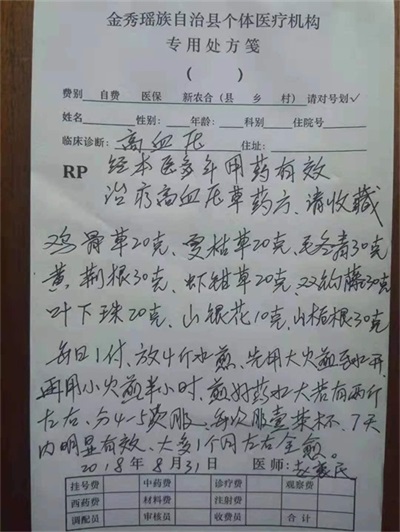 金秀瑶族自治县个体医疗机构
专用处方笺
( )
费别 自费 医保 新农合(县 乡 村) 请对号划√
姓名 性别: 年龄: 科别 住院号
临床诊断: 高血压 住址:
RP 经本医多年用药有效
治疗高血压草药方、请收藏
鸡骨草20克、夏枯草20克、毛冬青30克
黄荆根30克、虾钳草20克、双钩藤30克
叶下珠20克、山银花10克、山栀根30克
每日1付、放4斤水煎、先用大火煎至水开
再用小火煎半小时、煎好药水大若有两斤
左右、分4-5次服、每次服壹茶杯、7天
内明显有效、大多1个月左右全愈。
2018年8月31日 医师:
挂号费 中药费 诊疗费 观察费
西药费 材料费 注射费
调配员 审核员 收费员 合计